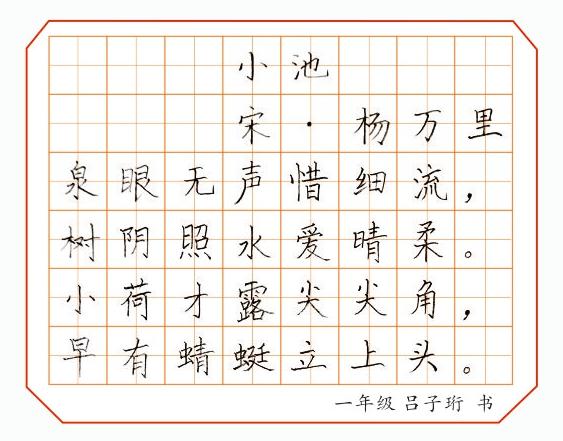 小池
宋·杨万里
泉眼无声惜细流，
树阴照水爱晴柔。
小荷才露尖尖角，
早有蜻蜓立上头。
一年级 吕子珩 书